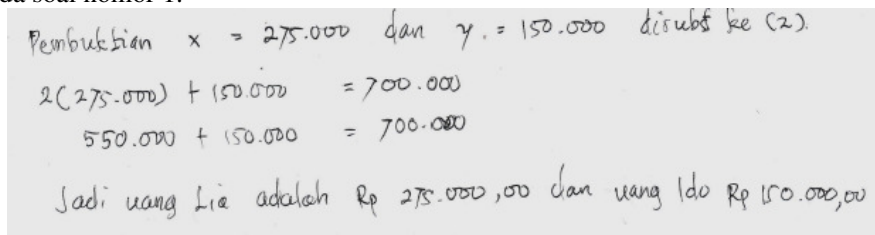 da soal nomor 1.
Pembuktian x = 275.000 dan y. = 150.000 disubt ke (2).
2(275.000) + 150.000 = 700.000
550.000 + 150.000 = 700.000
Jadi uang Lia adalah Rp 275.000,00 dan uang Ido Rp 150.000,00